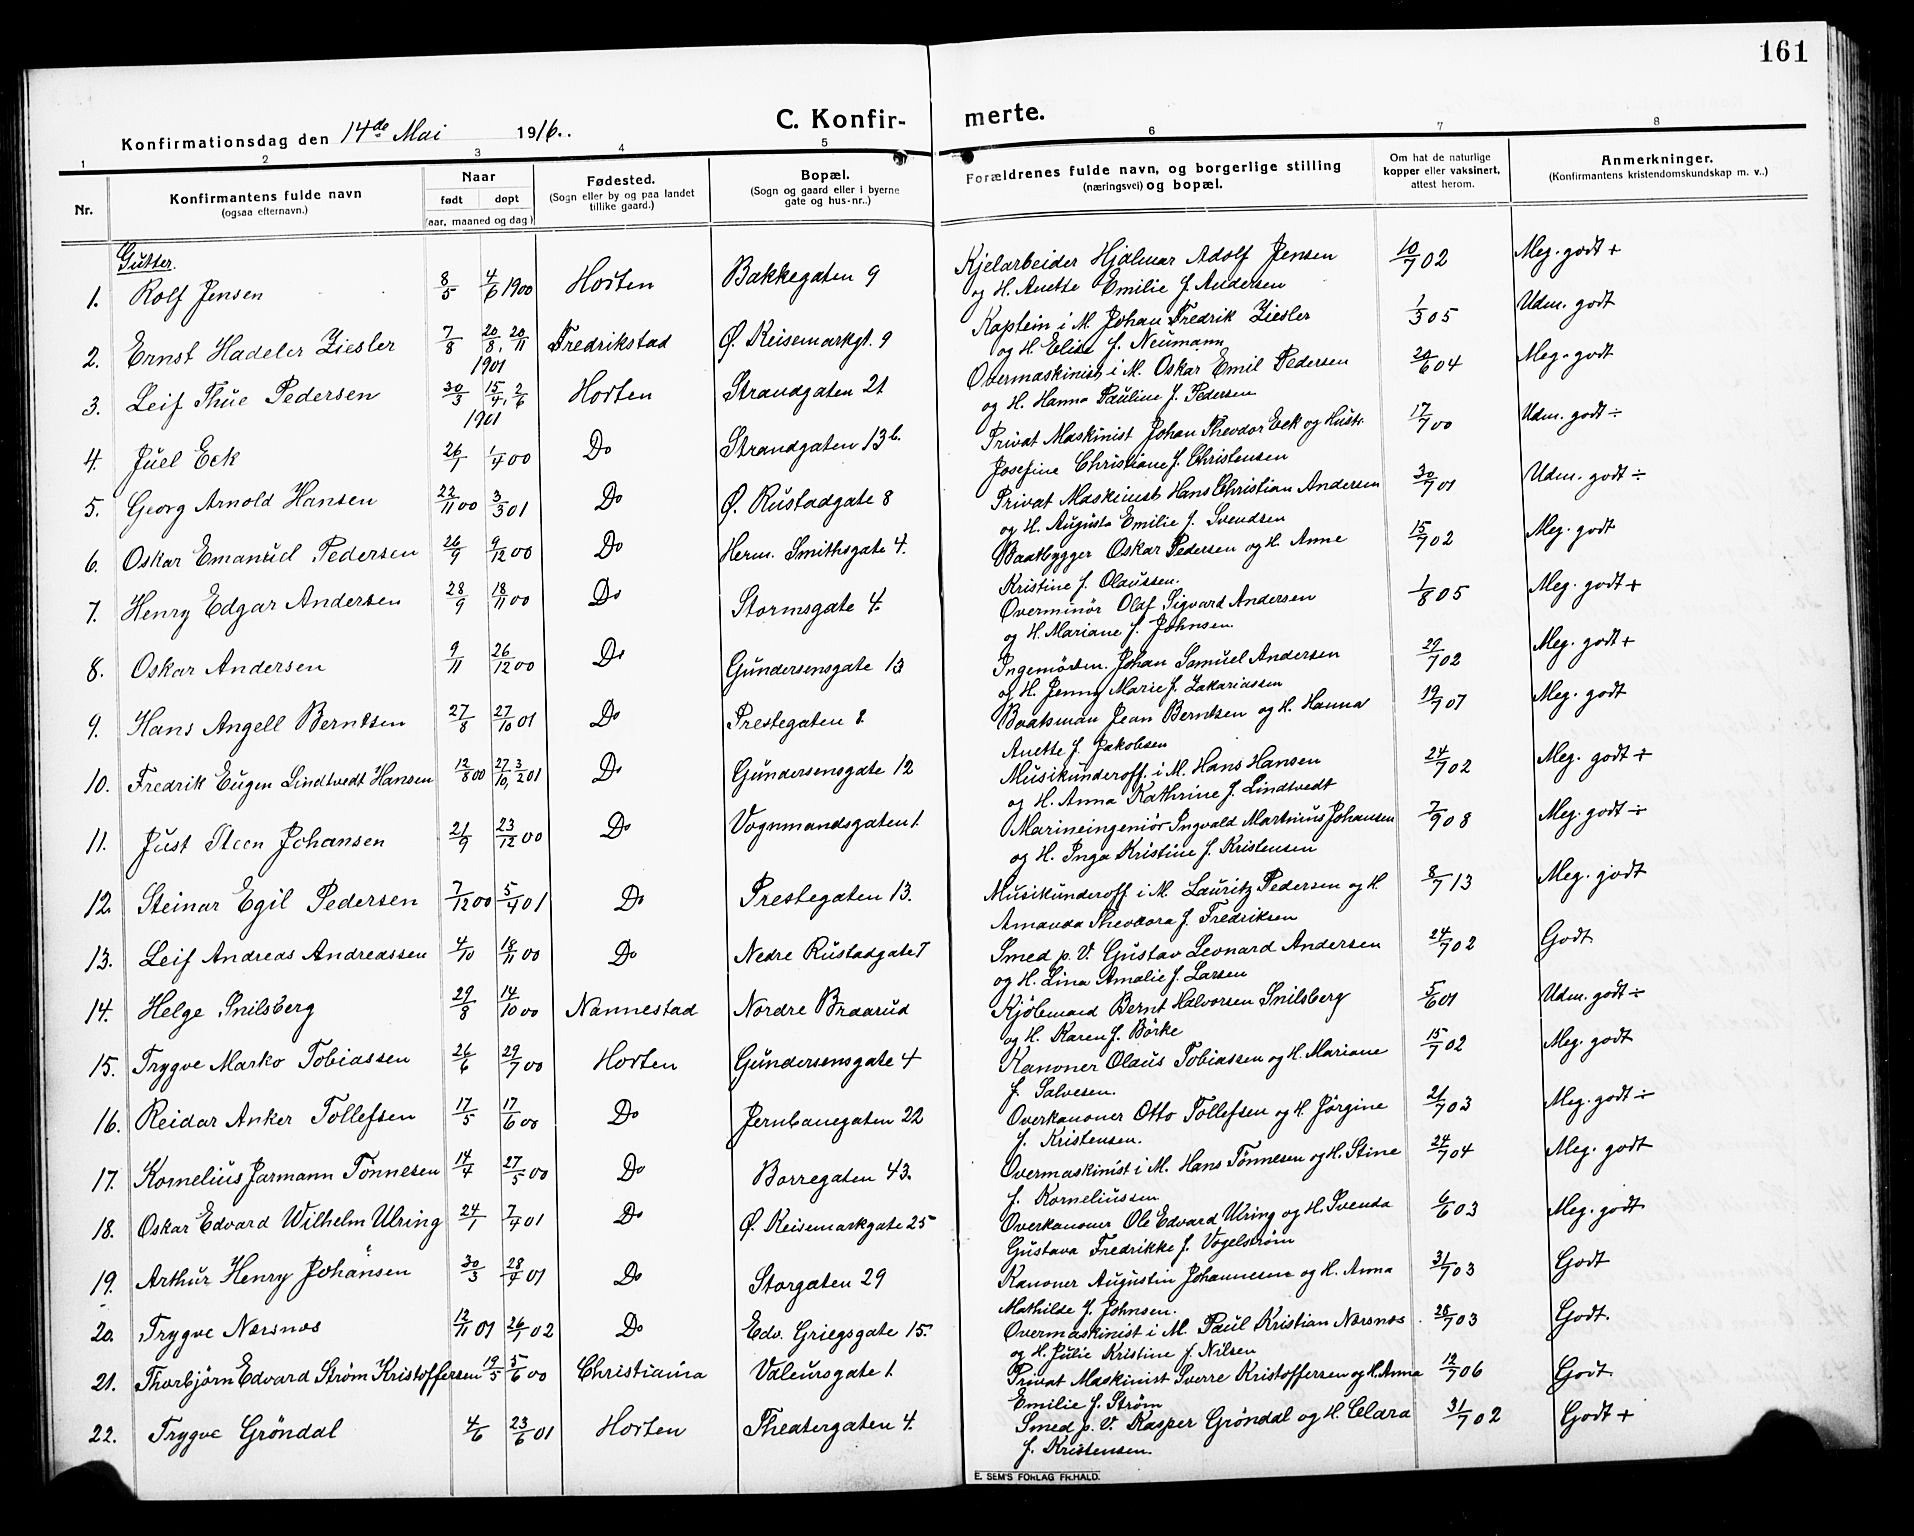 161
C. Konfirmerte.
Konfirmationsdag den 14de Mai 1916.
1 2 3 4 5 6 7 8
Nr.
Konfirmantens fulde navn
(ogsaa efternavn.)
Naar
født døpt
(aar, maaned og dag)
Fødested.
(Sogn eller by og paa landet
tillike gaard.)
Bopæl.
(Sogn og gaard eller i byerne
gate og hus-nr..)
Forældrenes fulde navn, og borgerlige stilling
(næringsvei) og bopæl.
Om hat de naturlige
kopper eller vaksinert,
attest herom.
Anmerkninger.
(Konfirmantens kristendomskundskap m. v..)
Gutter.
1. Rolf Jensen 8/5 4/6 1900 Horten Bakkegaten 9 Kjelarbeider Hjalmar Adolf Jensen 10/7 02 Meg. godt +
og H. Anette Emilie f. Andersen
2. Ernst Hadeler Ziesler 7/8 20/8, 20/11 Fredrikstad Ø. Keisemarkgt. 9 Kaptein i M. Johan Fredrik Ziesler 1/3 05 Udm. godt
1901 og H. Elise f. Neumann
3. Leif Thue Pedersen 30/3 15/4, 2/6 Horten Strandgaten 21 Overmaskinist i M. Oskar Emil Pedersen 20/6 04 Meg. godt
1901 og H. Hanna Pauline f. Pedersen
4. Juel Eck 26/1 1/4 00 Do Strandgaten 13 b. Privat Maskinist Johan Theodor Eck og Hustr. 17/7 00 Udm. godt ÷
Josefine Christiane f. Christensen
5. Georg Arnold Hansen 22/11 00 3/3 01 Do Ø. Rustadgate 8 Privat Maskinist Hans Christian Andersen 30/7 01 Udm. godt ÷
og H. Augusta Emilie f. Svendsen
6. Oskar Emanuel Pedersen 26/9 9/12 00 Do Herm. Smithsgate 4. Baatbygger Oskar Pedersen og H. Anne 15/7 02 Meg. godt
Kristine f. Olaussen.
7. Henry Edgar Andersen 28/9 18/11 00 Do Stormsgate 4. Overminör Olaf Sigvard Andersen 1/8 05 Meg. godt +
og H. Mariane f. Johnsen.
8. Oskar Andersen 9/11 26/12 00 Do Gundersensgate 13 Johan Samuel Andersen 29/7 02 Meg. godt +
og H. Jenny Marie f. Zakariassen
9. Hans Angell Berntsen 27/8 27/10 01 Do Prestegaten 8. Baatsman Jean Berntsen og H. Hanna 19/7 07 Meg. godt
Anette f. Jakobsen
10. Fredrik Eugen Lindtvedt Hansen 12/8 00 27/10, 3/2 01 Do Gundersensgate 12 Musikunderoff. i M. Hans Hansen 24/7 02 Meg. godt +
og H. Anna Kathrine f. Lindtvedt
11. Just Steen Johansen 21/9 23/12 00 Do Vognmandsgaten 1. Marineingeniör Ingvald Martinius Johansen 7/9 08 Meg. godt ÷
og H. Inga Kristine f. Kristensen
12. Steinar Egil Pedersen 7/12 00 5/4 01 Do Prestegaten 13. Musikunderoff. i M. Lauritz Pedersen og H. 8/7 13 Meg. godt
Amanda Theodora f. Fredriksen
13. Leif Andreas Andreassen 4/10 18/11 00 Do Nedre Rustadgate 7 Smed p. V. Gustav Leonard Andersen 24/7 02 Godt
og H. Lina Amalie f. Larsen
14. Helge Snilsberg 29/8 14/10 00 Nannestad Nordre Braarud Kjöbmand Bernt Halvorsen Snilsberg 5/6 01 Udm. godt ÷
og H. Karen f. Börke
15. Trygve Marko Tobiassen 26/6 29/7 00 Horten Gundersensgate 4 Kanoner Olaus Tobiassen og H. Mariane 15/7 02 Meg. godt
f. Salvesen.
16. Reidar Anker Tollefsen 17/5 17/6 00 Do Jernbanegaten 22 Overkanoner Otto Tollefsen og H. Jörgine 21/7 03 Meg. godt ÷
f. Kristensen.
17. Kornelius Jarmann Tönnesen 14/4 27/5 00 Do Borregaten 43. Overmaskinist i M. Hans Tönnesen og H. Stine 24/7 04 Meg. godt
f. Korneliussen
18. Oskar Edvard Wilhelm Ulring 24/1 7/4 01 Do Ø. Keisemarkgate 25 Overkanoner Ole Edvard Ulring og H. Svenda 6/6 03 Meg. godt
Gustava Fredrikke f. Vogelstrøm
19. Arthur Henry Johansen 30/3 28/4 01 Do Storgaten 29 Kanoner Augustin Johannesen og H. Anna 31/7 03 Godt
Mathilde f. Johnsen.
20. Trygve Nærsnæs 12/11 01 26/1 02 Do Edv. Griegsgate 15. Overmaskinist i M. Paul Kristian Nærsnæs 28/7 03 Godt.
og H. Julie Kristine f. Nilsen
21. Thorbjørn Edvard Strøm Kristoffersen 19/5 5/6 00 Christiania Valeursgate 1 Privat Maskinist Sverre Kristoffersen og H. Anna 12/7 06 Godt
Emilie f. Strøm
22. Trygve Gröndal 4/6 23/6 01 Horten Theatergaten 4. Smed p. V. Kasper Gröndal og H. Clara 31/7 02 Godt +
f. Kristensen.
E. SEM'S FORLAG FR.HALD.